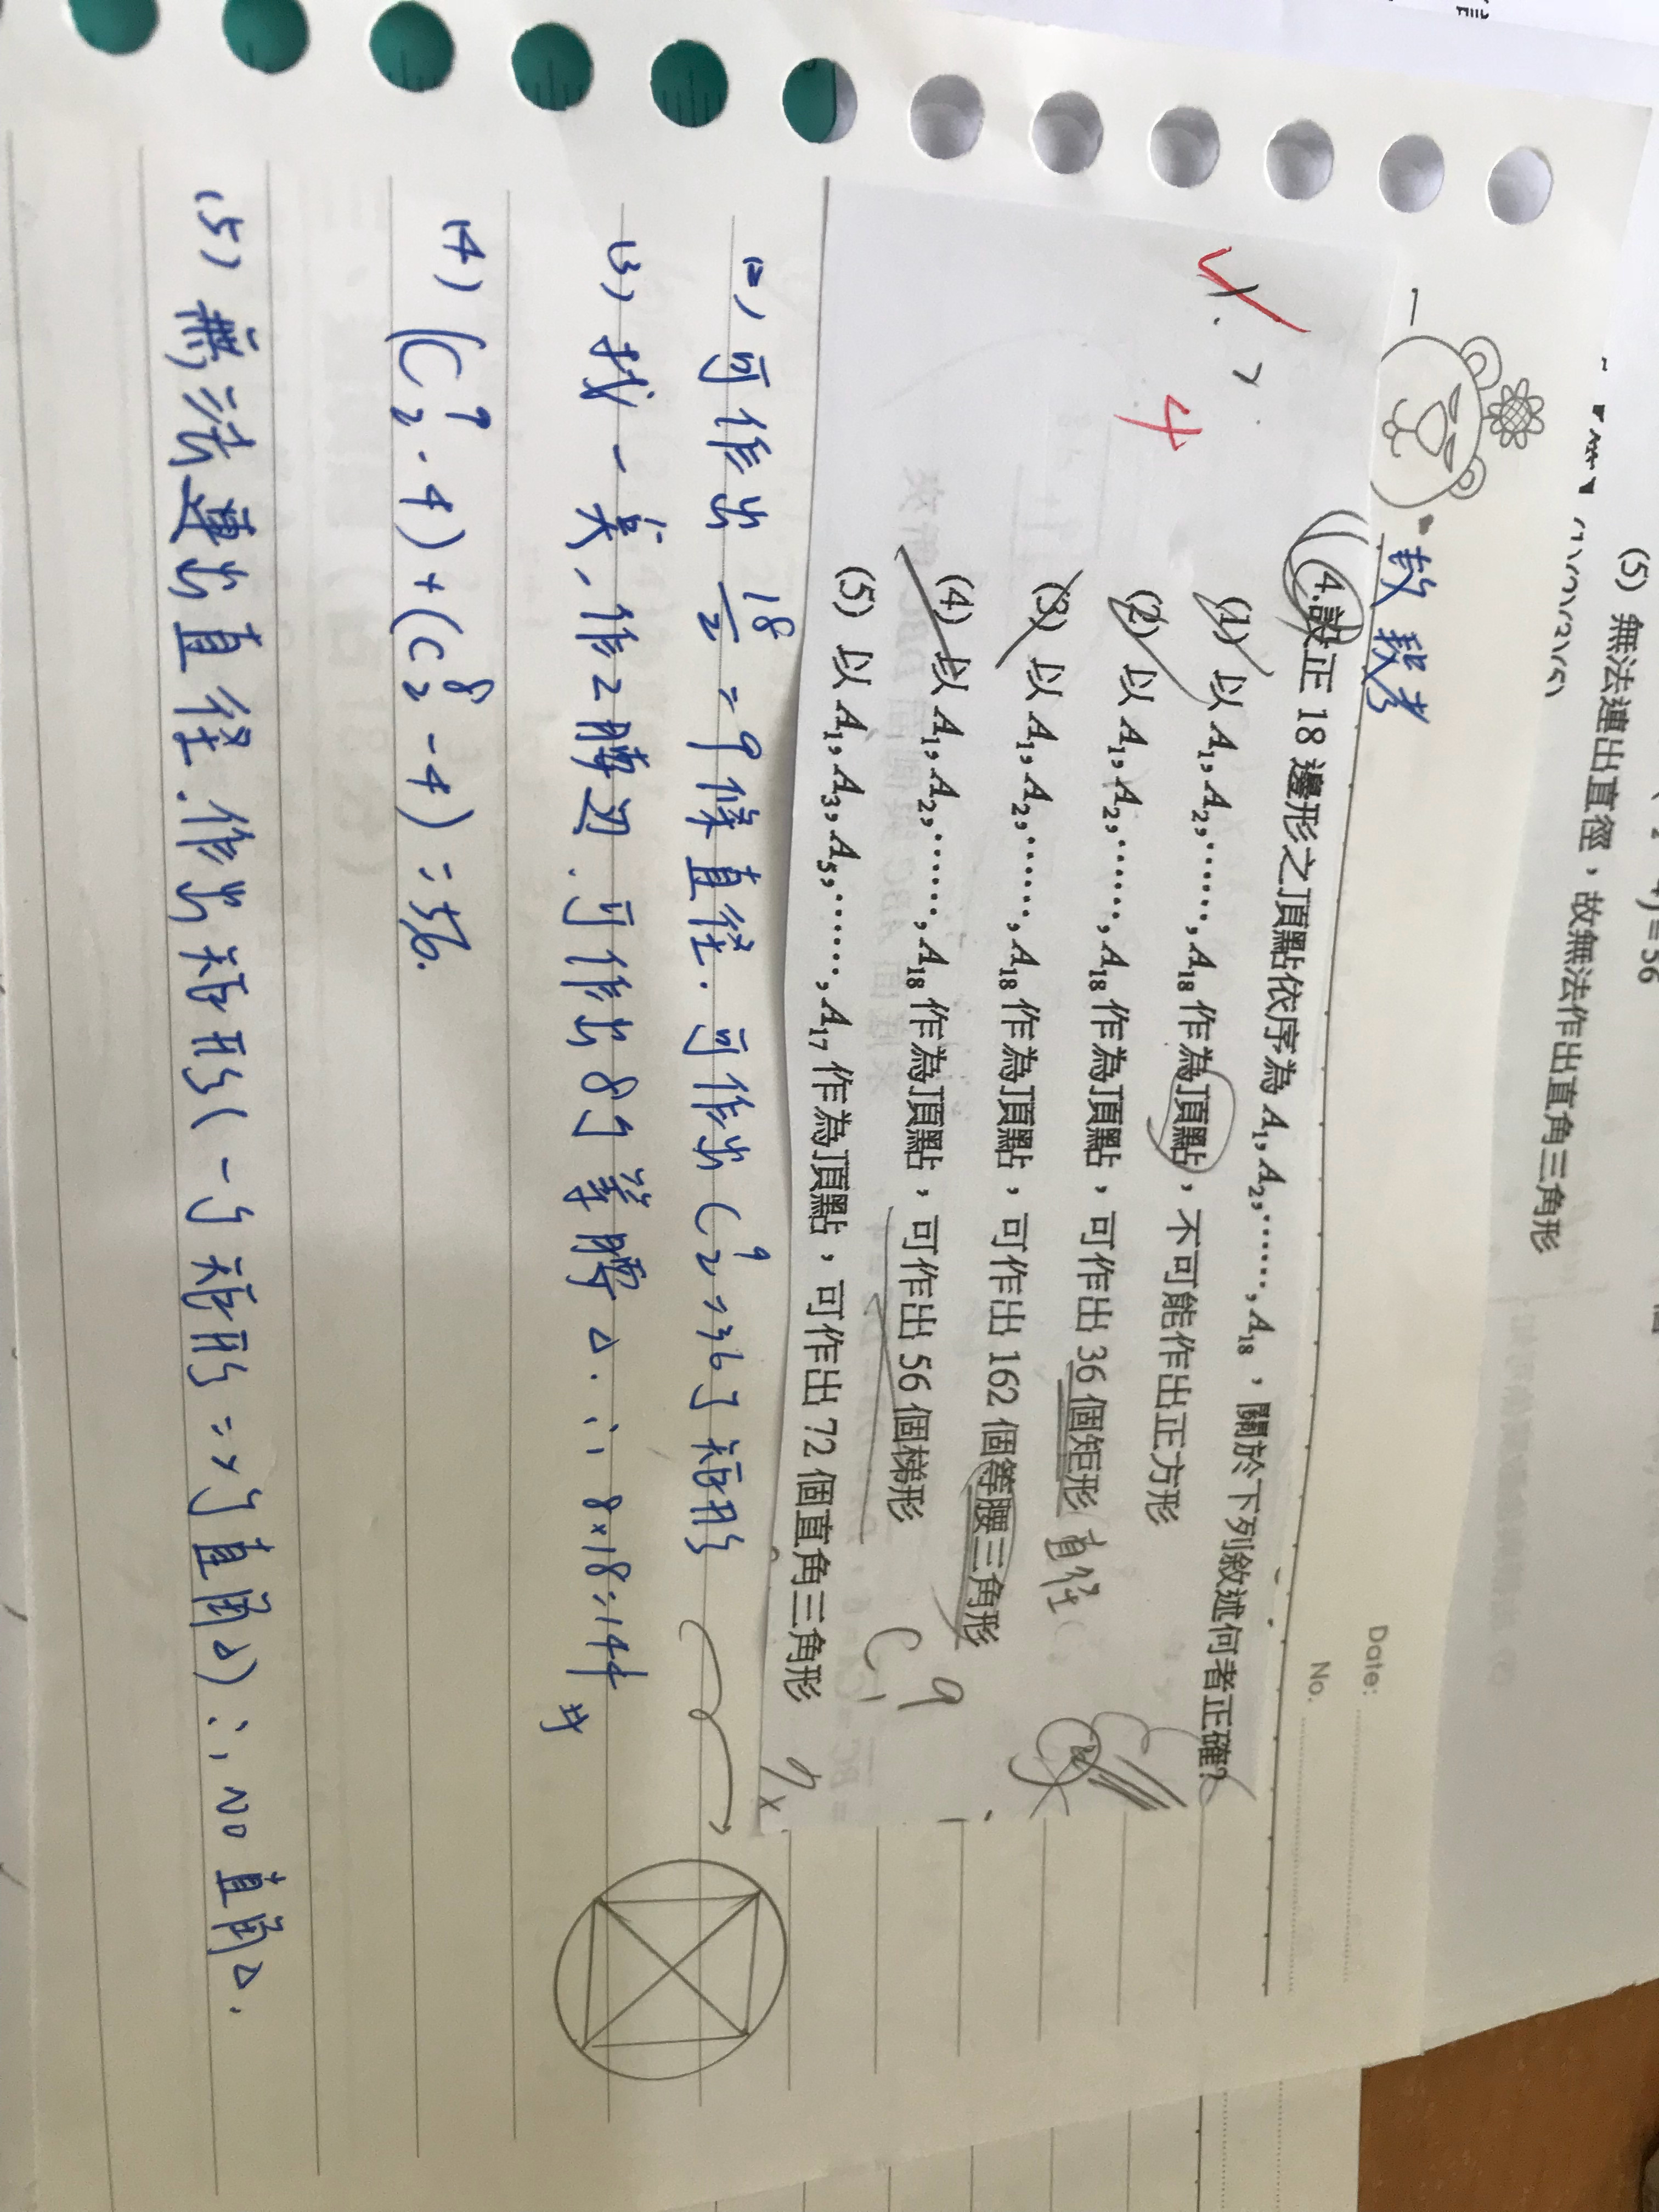 4)=56
(5) 無法連出直徑,故無法作出直角三角形
Date:
No.
教 我考
4.設正 18 邊形之頂點依序為 A₁, A₂, ……, A₁₈,關於下列敘述何者正確?
(1) 以 A₁, A₂, ……, A₁₈ 作為頂點,不可能作出正方形
(2) 以 A₁, A₂, ……, A₁₈ 作為頂點,可作出 36 個矩形 直徑
(3) 以 A₁, A₂, ……, A₁₈ 作為頂點,可作出 162 個等腰三角形
(4) 以 A₁, A₂, ……, A₁₈ 作為頂點,可作出 56 個梯形
(5) 以 A₁, A₃, A₅, ……, A₁₇ 作為頂點,可作出 72 個直角三角形
4
(2) 可作出 18/2 = 9條直徑. 可作出 C⁹₂=36个矩形
(3) 找一点、作2腰边. 可作出8个等腰△. ∴ 8×18=144
(4) (C⁹₂·4)+(C⁸₂-4)=56.
(5) 無法連出直徑.作出矩形(一个矩形=>个直角△)∴no直角△.